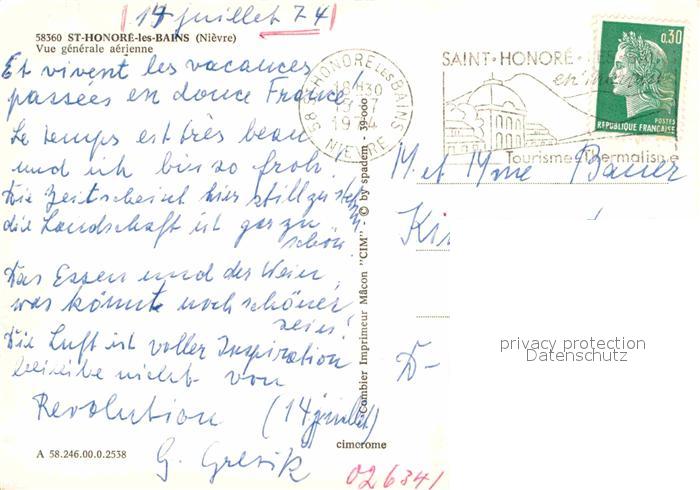 14 juillet 74
58360 ST-HONORÉ-les-BAINS (Nièvre)
Vue générale aérienne
Et vivent les vacances
passées en douce France!
Le temps est très beau
und ich bin so froh.
Die Zeit scheint hier still zu steh'n
die Landschaft ist gar zu
schön
Das Essen und der Wein,
was könnte noch schöner
sein!
Die Luft ist voller Inspiration
beileibe nicht von
Revolution (14 juillet)
G.
A 58.246.00.0.2538
cimcrome
026341
Combier Imprimeur Mâcon "CIM" - © by spadem - 39-000
58 ST-HONORÉ LES BAINS
18H30
1974
NIEVRE
SAINT-HONORÉ
Tourisme Thermalisme
0,30
POSTES
REPUBLIQUE FRANÇAISE
M et Mme Bauer
Ki
D-
privacy protection
Datenschutz